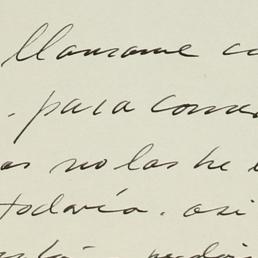 llamame co
. para comu
as no las he
todavía. asi